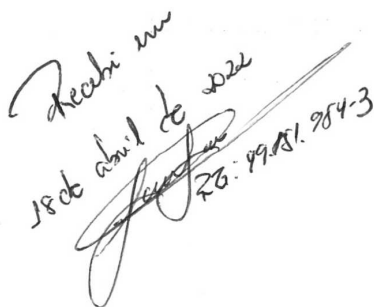 Recebi em
18 de abril de 2022
RG: 49.151.984-3